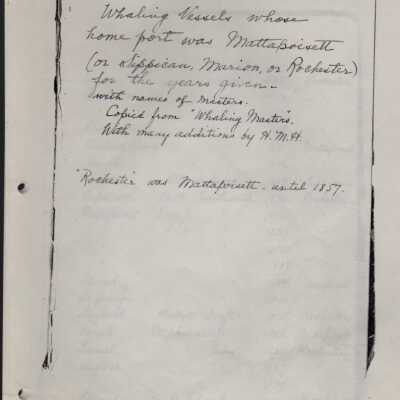 Whaling Vessels whose
home port was Mattapoisett
(or Sippican, Marion, or Rochester)
for the years given—
with names of masters.
Copied from "Whaling Masters".
With many additions by H.M.H.
"Rochester" was Mattapoisett - until 1857.